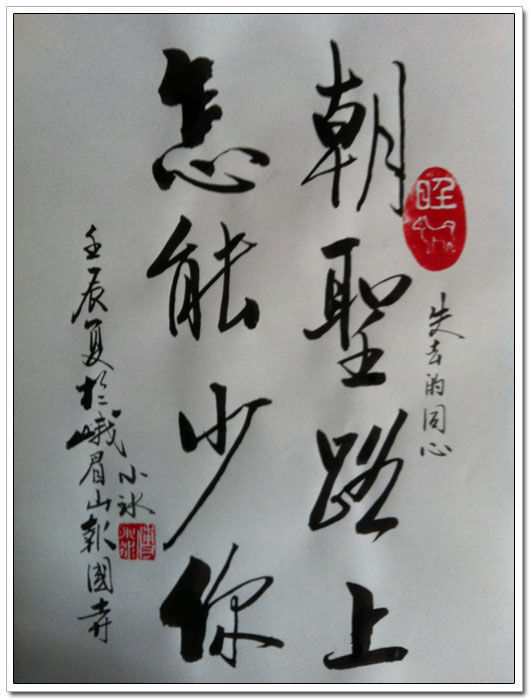 失去的同心
朝聖路上
怎能少你
壬辰夏於峨眉山報國寺
小冰